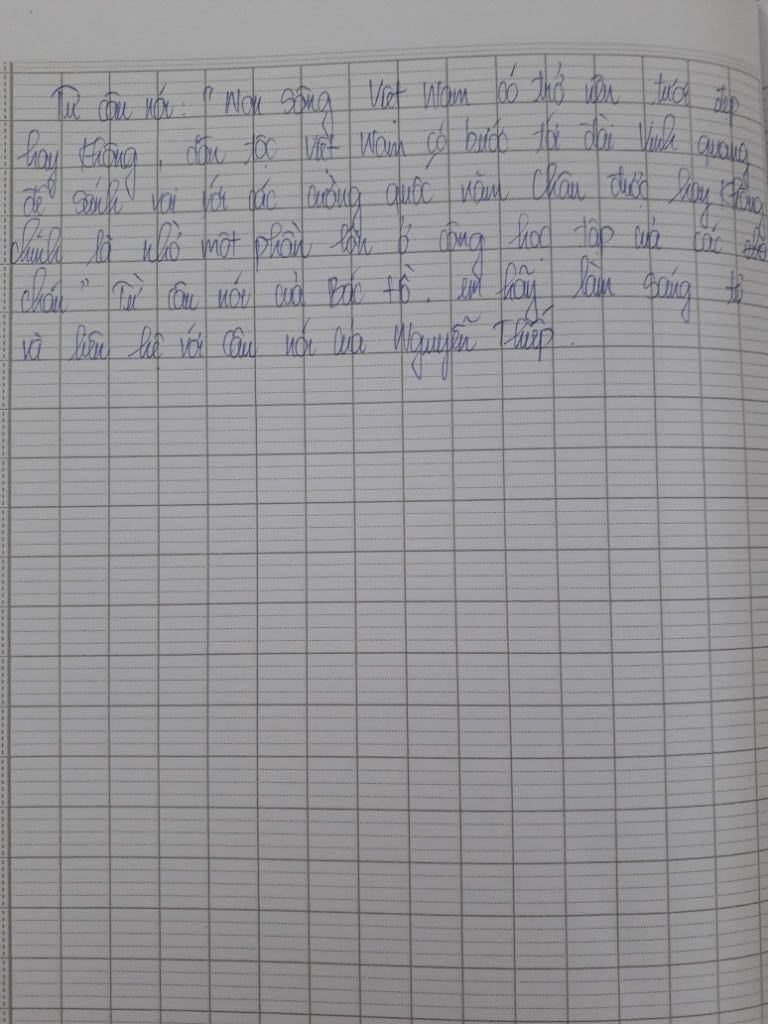 Từ câu nói: "Non sông Việt Nam có thở nên tươi đẹp
hay không, dân tộc Việt Nam có bước tới đài Vinh quang
để sánh vai với các cường quốc năm châu được hay không
chính là nhờ một phần lớn ở công học tập của các
cháu" Từ câu nói của Bác Hồ. em hãy làm sáng tỏ
và liên hệ với câu nói của Nguyễn Thiếp.